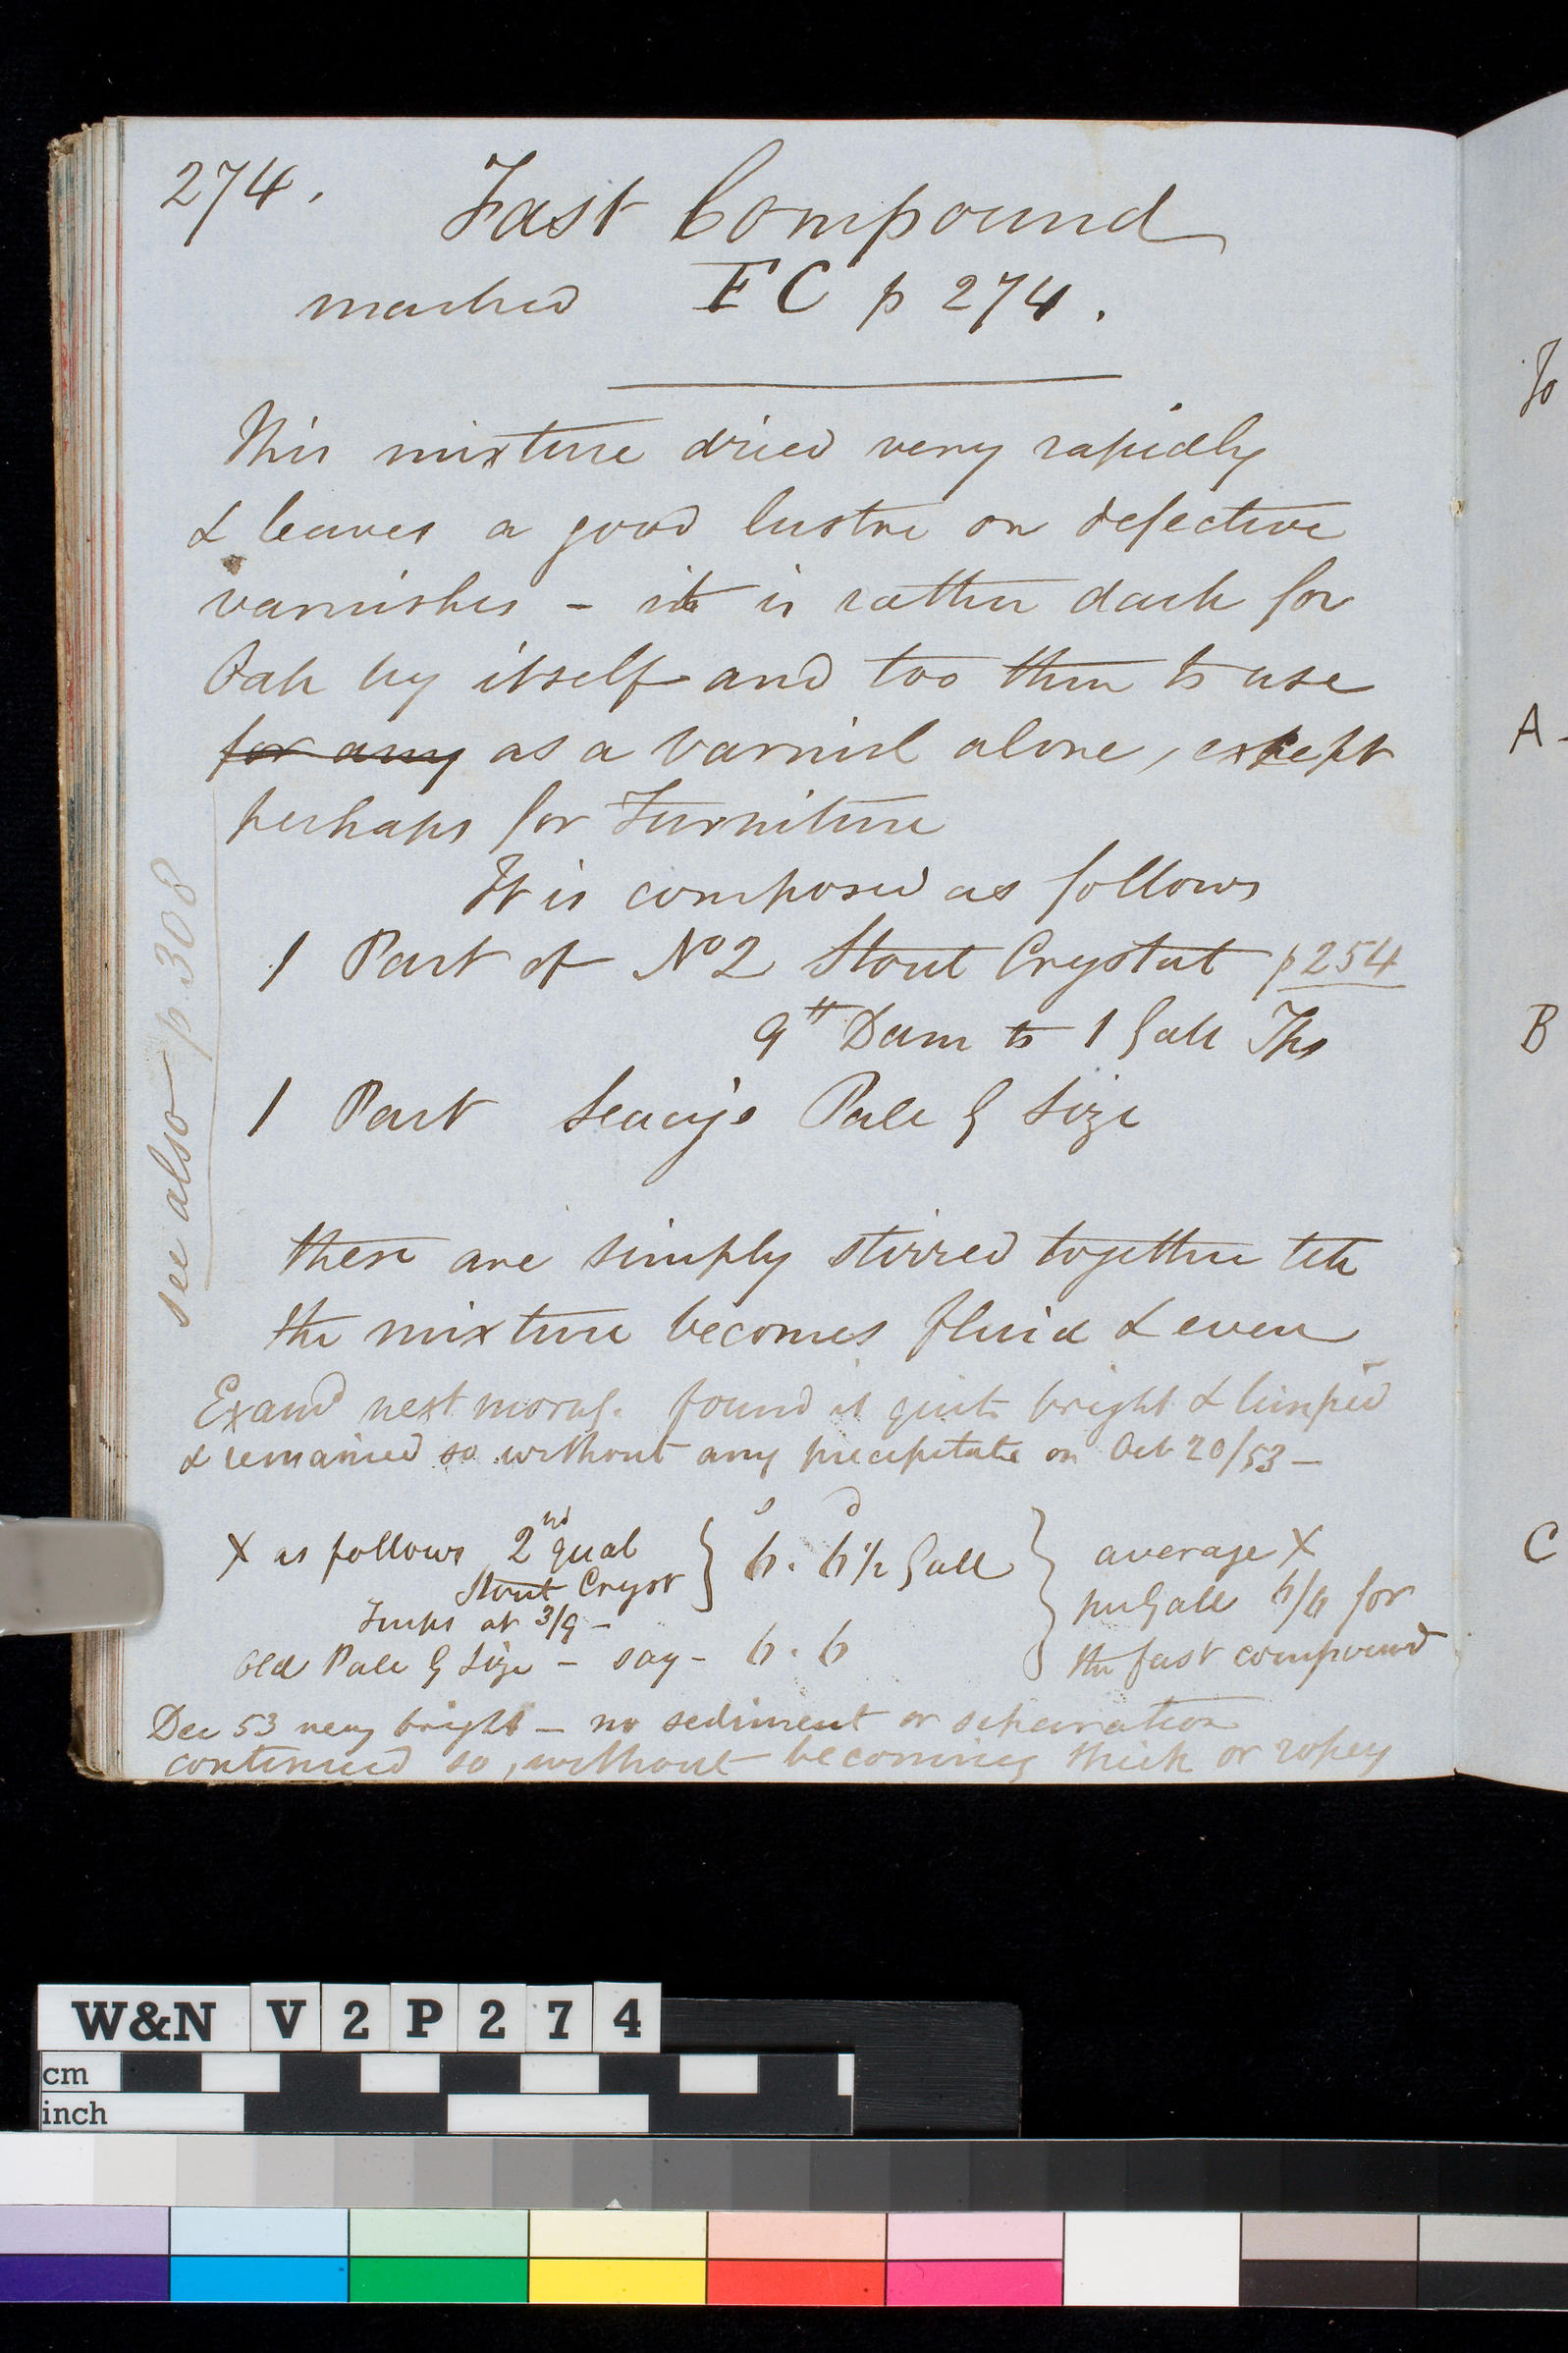 274.
Fast Compound
marked FC p 274.
This mixture dried very rapidly
& leaves a good lustre on defective
varnishes - it is rather dark for
Oak by itself and too thin to use
for any as a varnish alone, except
perhaps for Furniture
It is composed as follows
1 Part of No 2 Stout Crystal p 254
9 lb Dam to 1 Gall Tps
1 Part Seacy's Pale G Size
these are simply stirred together till
the mixture becomes fluid & even
Examd next morng. found it quite bright & limpid
& remained so without any precipitate on Oct 20/53 -
see also p. 308
X as follows 2nd qual } s d
Stout Cryst } 6. 6½ Gall } average X
Turps at 3/9 - } per Gall 6/6 for
Old Pale G Size - say - 6. 6 } the fast compound
Dec 53 very bright - no sediment or separation
continued so, without becoming thick or ropey
To
A -
B
C
W&N V 2 P 2 7 4
cm
inch